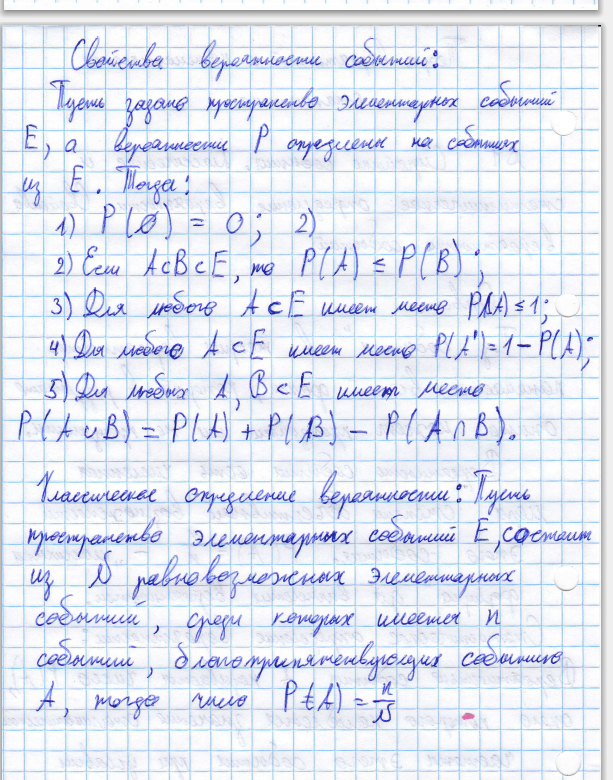 Свойства вероятности событий:
Пусть задано пространство элементарных событий
E, а вероятности P определены на событиях
из E. Тогда:
1) P(∅) = 0; 2)
2) Если A⊂B⊂E, то P(A) ≤ P(B);
3) Для любого A⊂E имеет место P(A) ≤ 1;
4) Для любого A⊂E имеет место P(A') = 1 − P(A);
5) Для любых A, B⊂E имеет место
P(A∪B) = P(A) + P(B) − P(A∩B).
Классическое определение вероятности: Пусть
пространство элементарных событий E, состоит
из N равновозможных элементарных
событий, среди которых имеется n
событий, благоприпятствующих событию
A, тогда число P(A) = n/N